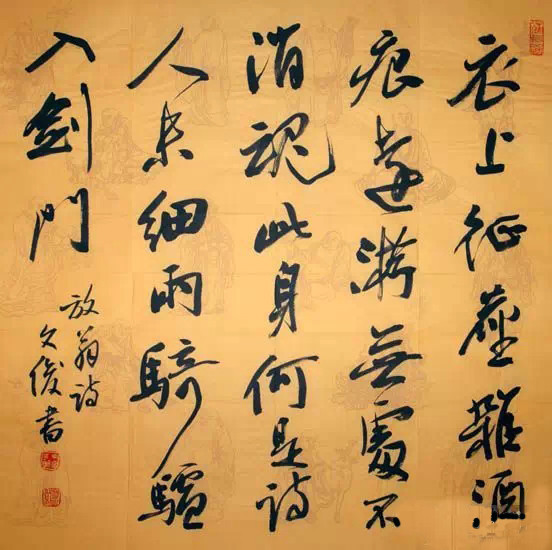 衣上征塵雜酒
痕遠游無處不
消魂此身何是詩
人未細雨騎驢
入劍門
放翁詩
文俊書